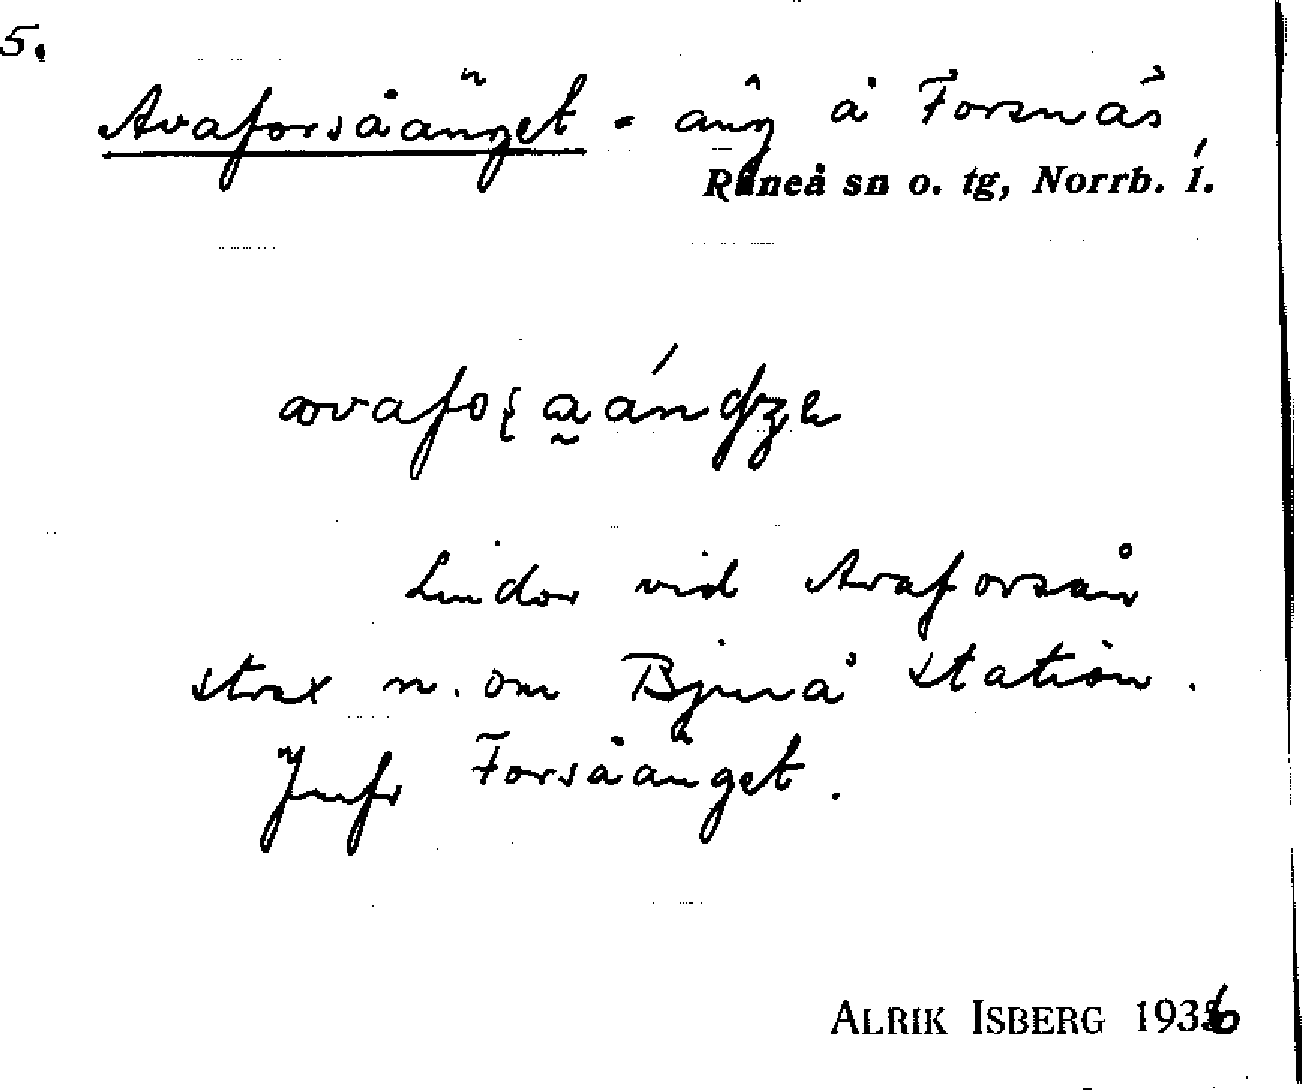 5.
Avaforsåänget - äng å Forsnäs
Råneå sn o. tg, Norrb. l.
Lindor vid Avaforsån
strax n. om Bjurå station.
Jmfr Forsåänget.
ALRIK ISBERG 1936